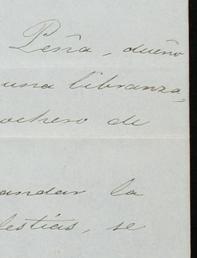 Peña, dueño
una libranza,
ochero de
andar la
lestias, se